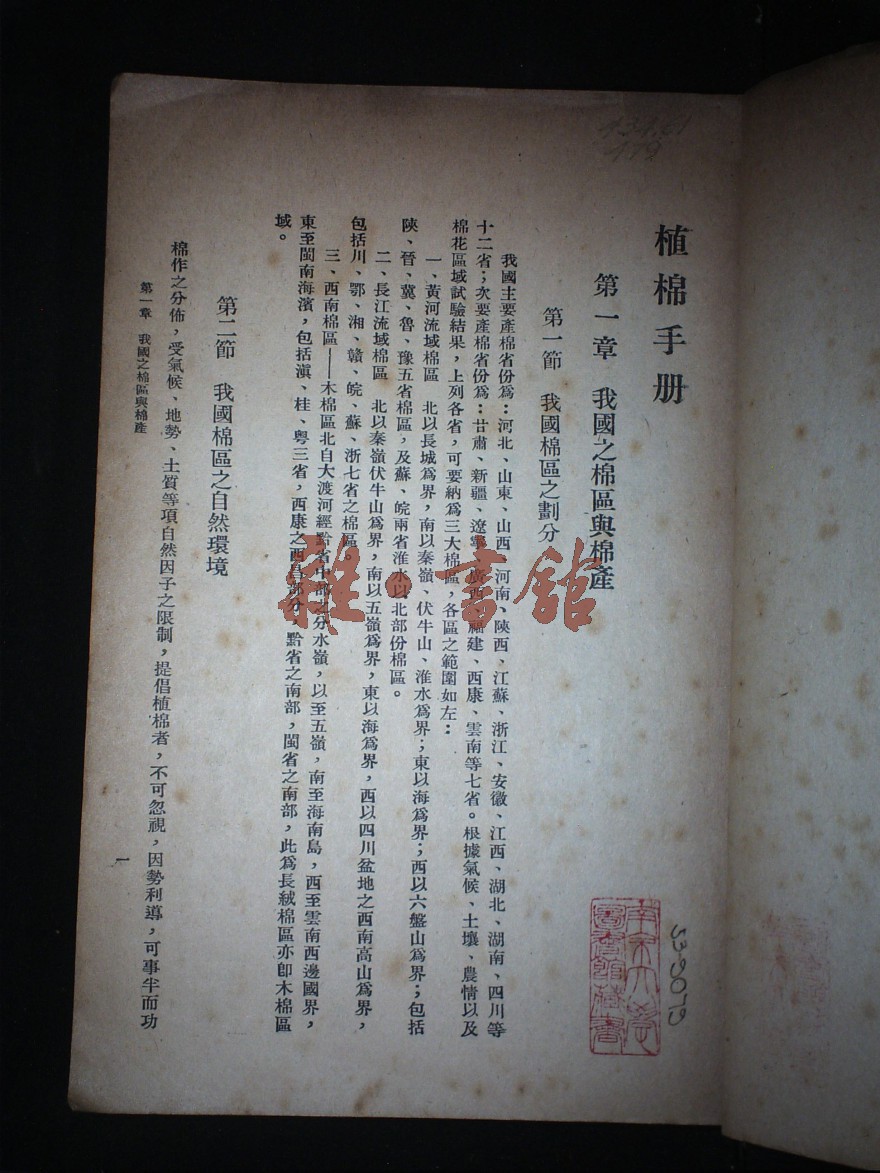 植棉手册
第一章 我國之棉區與棉產
第一節 我國棉區之劃分
我國主要產棉省份爲：河北、山東、山西、河南、陝西、江蘇、浙江、安徽、江西、湖北、湖南、四川等
十二省；次要產棉省份爲：甘肅、新疆、遼寧、廣西、福建、西康、雲南等七省。根據氣候、土壤、農情以及
棉花區域試驗結果，上列各省，可要納爲三大棉區，各區之範圍如左：
一、黃河流域棉區 北以長城爲界，南以秦嶺、伏牛山、淮水爲界；東以海爲界；西以六盤山爲界；包括
陝、晉、冀、魯、豫五省棉區，及蘇、皖兩省淮水以北部份棉區。
二、長江流域棉區 北以秦嶺伏牛山爲界，南以五嶺爲界，東以海爲界，西以四川盆地之西南高山爲界，
包括川、鄂、湘、贛、皖、蘇、浙七省之棉區。
三、西南棉區——木棉區北自大渡河經黔省中部之分水嶺，以至五嶺，南至海南島，西至雲南西邊國界，
東至閩南海濱，包括滇、桂、粵三省，西康之西昌部分，黔省之南部，閩省之南部，此爲長絨棉區亦卽木棉區
域。
第二節 我國棉區之自然環境
棉作之分佈，受氣候、地勢、土質等項自然因子之限制，提倡植棉者，不可忽視，因勢利導，可事半而功
第一章 我國之棉區與棉產
一
雜·書館
南京大學
圖書館藏書
539079